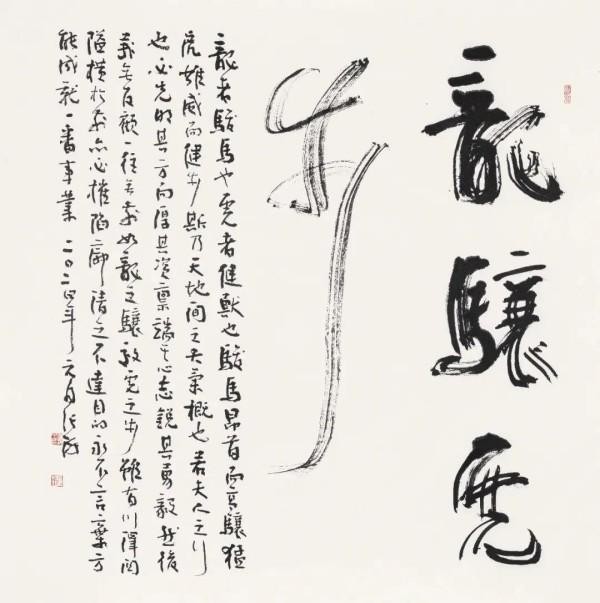 龍驤虎
步
龍者駿馬也虎者健獸也駿馬昂首而高驤猛
虎雄威而健步斯乃天地間之大氣概也若夫人之行
也必先明其方向厚其资禀端其心志銳其勇毅然後
義無反顧一往無前如龍之驤效虎之步雖有川障關
隘横於前亦必摧陷廓清之不達目的永不言棄方
能成就一番事業二〇二四年元月